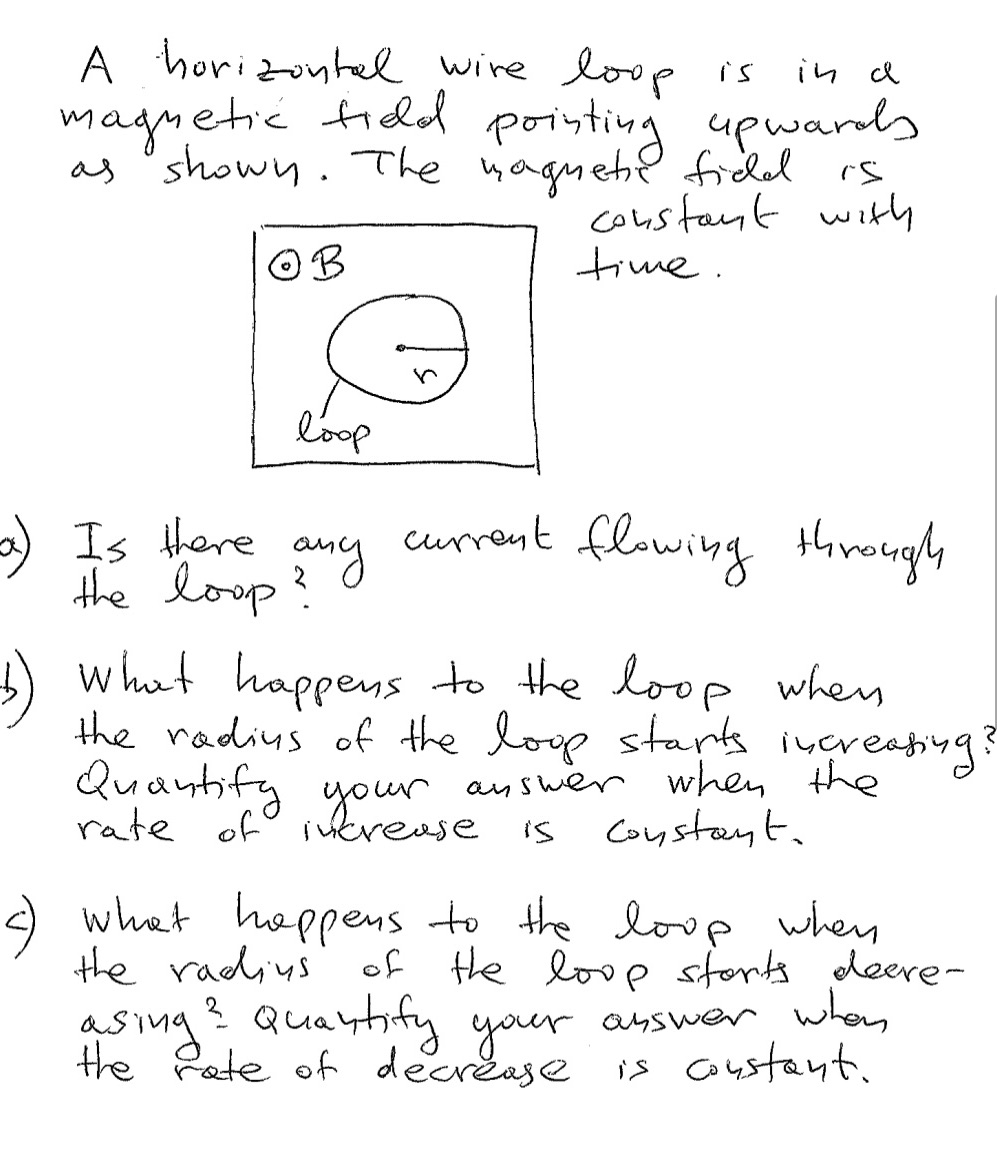 A horizontal wire loop is in a
magnetic field pointing upwards
as shown. The magnetic field is
constant with
time.
⊙ B
r
loop
a) Is there any current flowing through
the loop?
b) What happens to the loop when
the radius of the loop starts increasing?
Quantify your answer when the
rate of increase is constant.
c) What happens to the loop when
the radius of the loop starts decre-
asing? Quantify your answer when
the rate of decrease is constant.